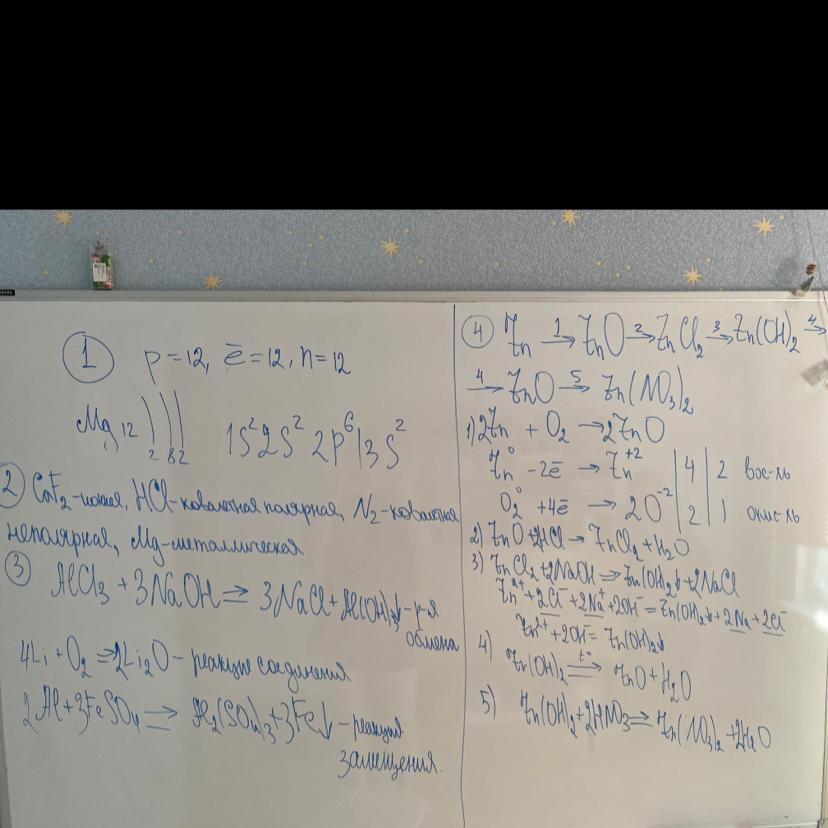 1 p=12, ē=12, n=12
Mg 12 ) ) ) 2 8 2 1S² 2S² 2p⁶ | 3S²
2 CaF₂-ионная, HCl-ковалетная полярная, N₂-ковалетная
неполярная, Mg-металлическая
3 AlCl₃ + 3NaOH ⇒ 3NaCl + Al(OH)₃↓ - р-я
обмена
4Li + O₂ ⇒ 2Li₂O - реакция соединения
2Al + 3FeSO₄ ⇒ Al₂(SO₄)₃ + 3Fe↓ - реакция
замещения.
4 Zn 1→ ZnO 2→ ZnCl₂ 3→ Zn(OH)₂ 4→
4→ ZnO 5→ Zn(NO₃)₂
1) 2Zn + O₂ → 2ZnO
Zn⁰ - 2ē → Zn⁺² | 4 | 2 вос-ль
O₂⁰ + 4ē → 2O⁻² | 2 | 1 окис-ль
2) ZnO + 2HCl → ZnCl₂ + H₂O
3) ZnCl₂ + 2NaOH ⇒ Zn(OH)₂↓ + 2NaCl
Zn²⁺ + 2Cl⁻ + 2Na⁺ + 2OH⁻ = Zn(OH)₂↓ + 2Na + 2Cl⁻
Zn²⁺ + 2OH⁻ = Zn(OH)₂↓
4) Zn(OH)₂ t°⇒ ZnO + H₂O
5) Zn(OH)₂ + 2HNO₃ ⇒ Zn(NO₃)₂ + 2H₂O